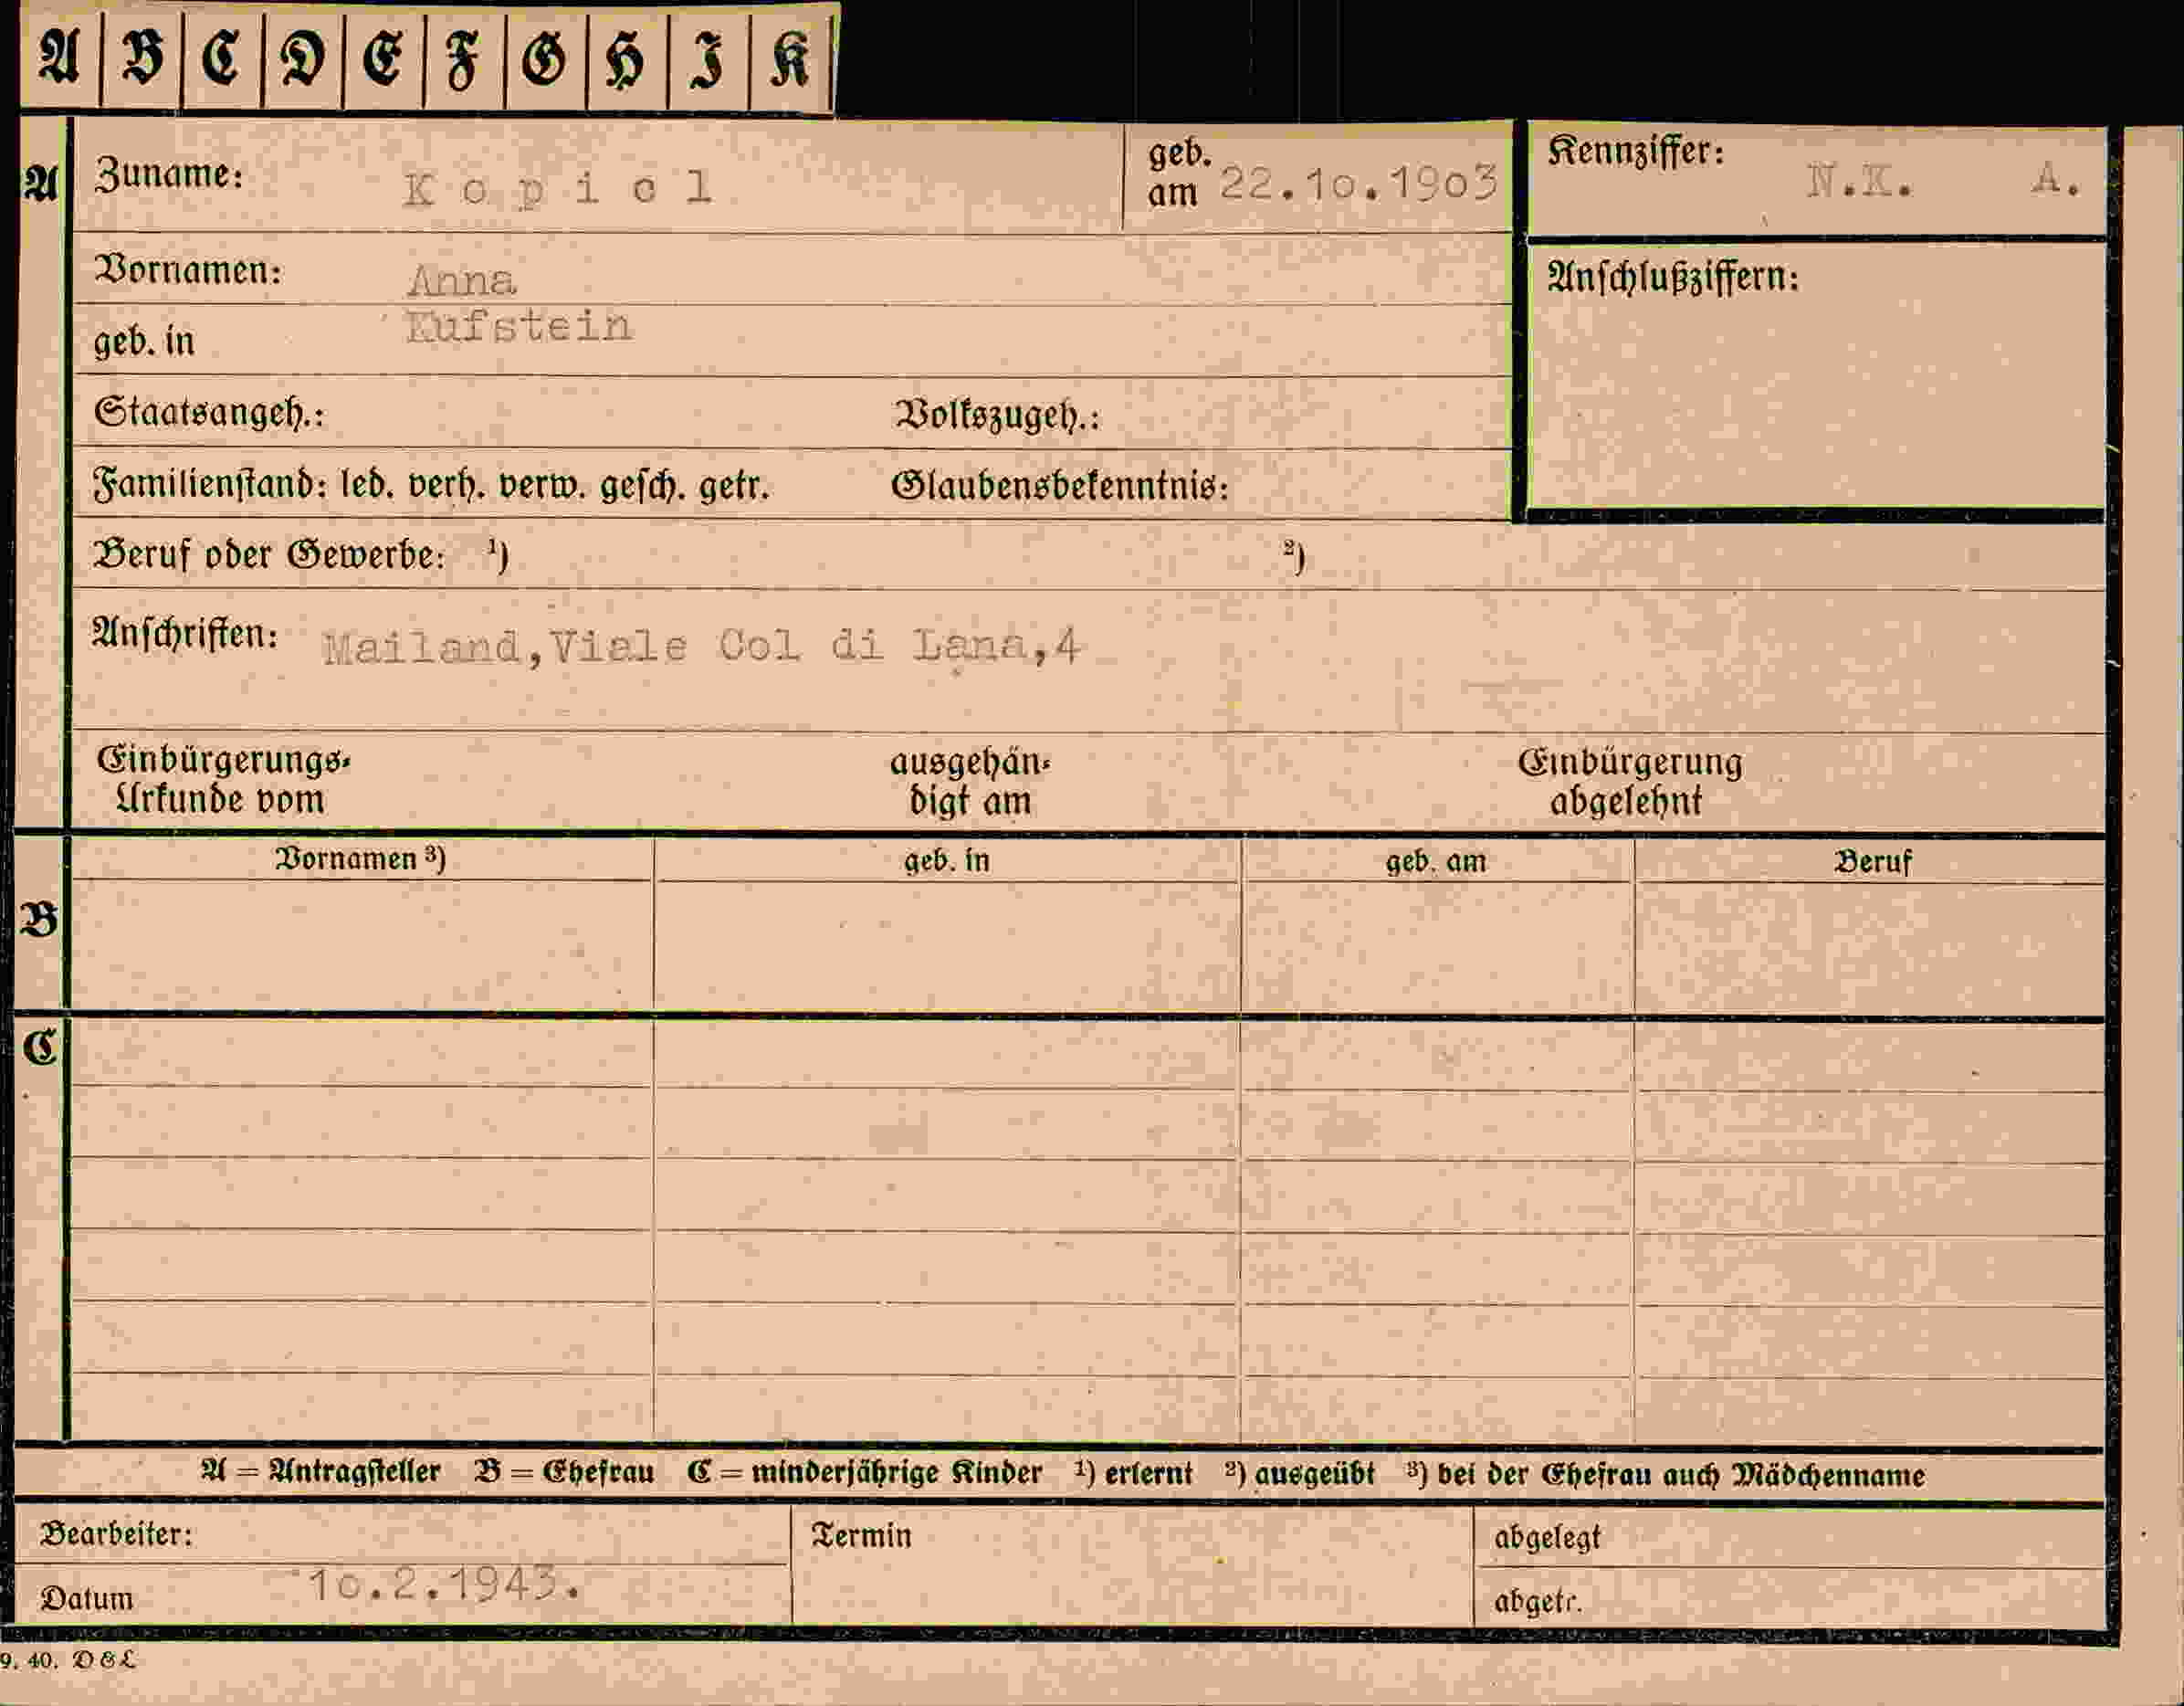 A B C D E F G H I K
A Zuname: Kopiol geb. am 22.10.1903 Kennziffer: N.K. A.
Vornamen: Anna Anschlußziffern:
geb. in Kufstein
Staatsangeh.: Volkszugeh.:
Familienstand: led. verh. verw. gesch. getr. Glaubensbekenntnis:
Beruf oder Gewerbe: ¹) ²)
Anschriften: Mailand, Viale Col di Lana, 4
Einbürgerungs- ausgehän- Einbürgerung
Urkunde vom digt am abgelehnt
Vornamen ³) geb. in geb. am Beruf
B
C
A = Antragsteller B = Ehefrau C = minderjährige Kinder ¹) erlernt ²) ausgeübt ³) bei der Ehefrau auch Mädchenname
Bearbeiter: Termin abgelegt
Datum 10.2.1943. abgetr.
9. 40. D & L